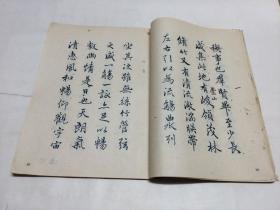 禊事也羣賢畢至少長
咸集此地有崇山峻領茂林
脩竹又有清流激湍暎帶
左右引以為流觴曲水列
坐其次雖無絲竹管弦
之盛一觴一詠亦足以暢
敘幽情是日也天朗氣
清惠風和暢仰觀宇宙